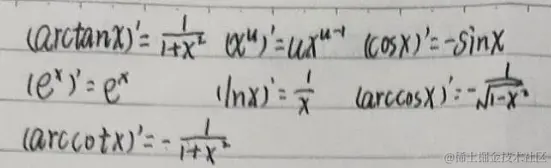 (arctanx)'=1/(1+x²) (x^u)'=ux^(u-1) (cosx)'=-sinx
(e^x)'=e^x (lnx)'=1/x (arccosx)'=-1/√(1-x²)
(arccotx)'=-1/(1+x²)
@稀土掘金技术社区